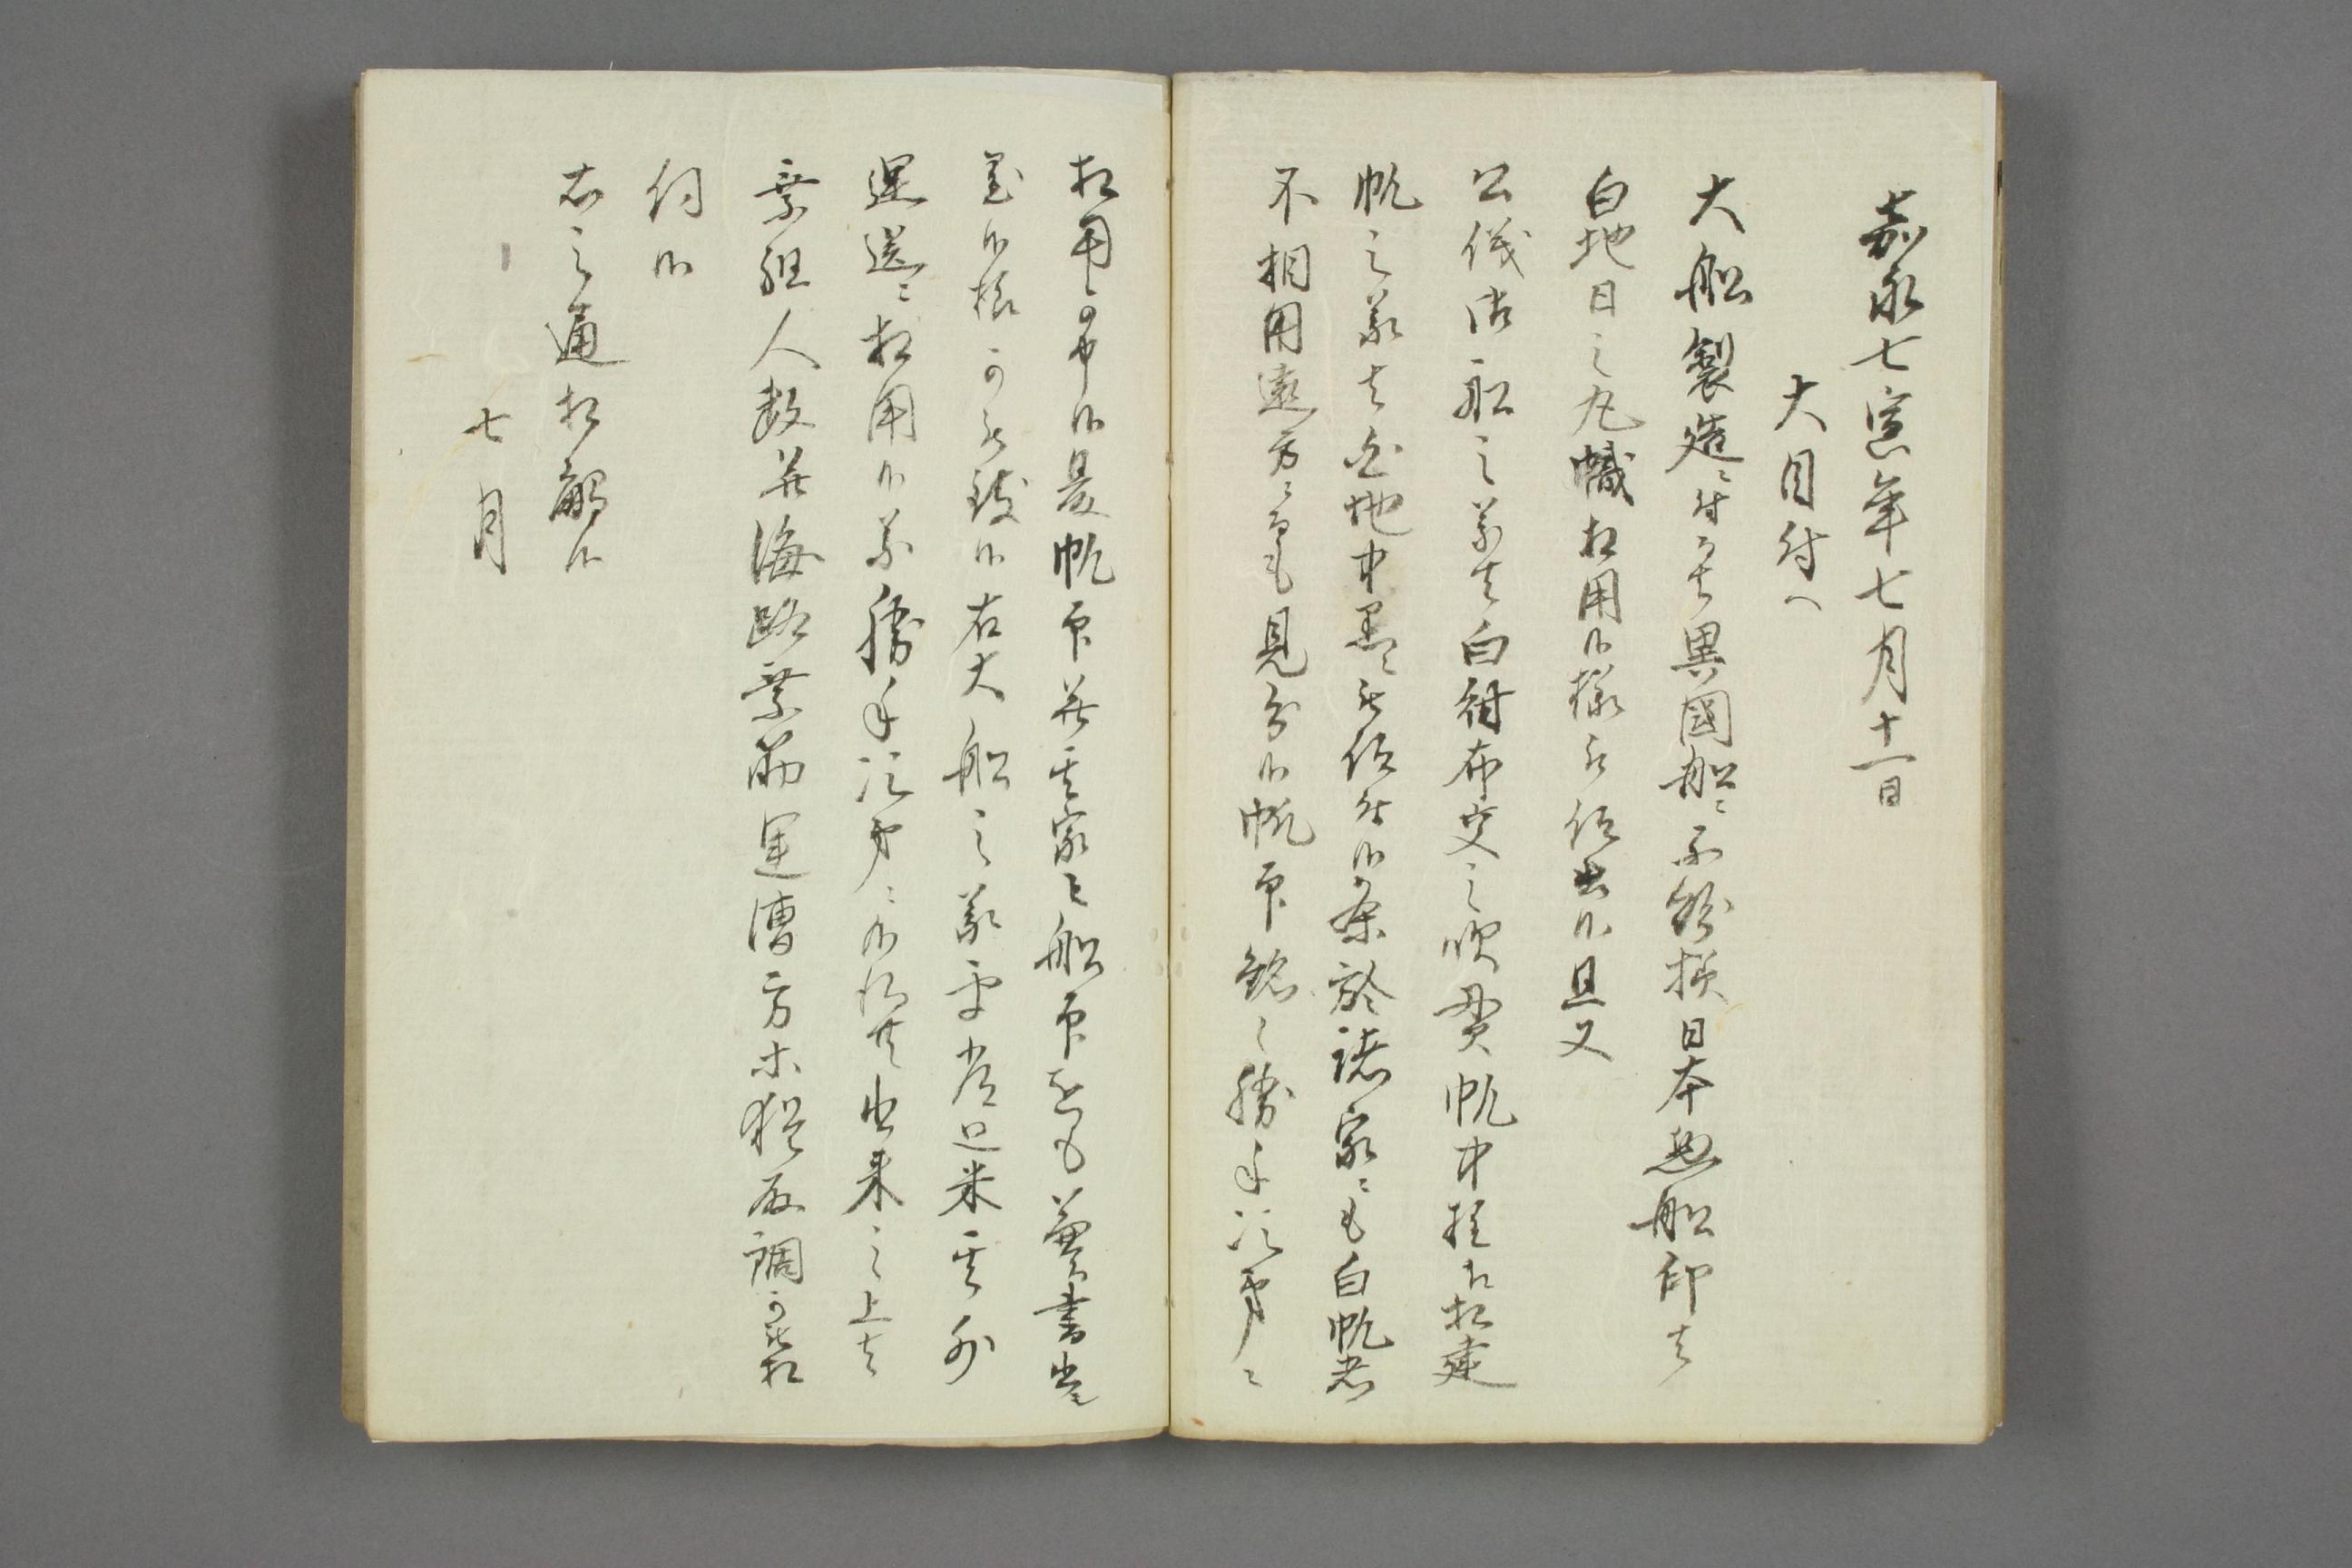 嘉永七寅年七月十一日
大目付へ
大船製造ニ付而者異國船ニ不紛様日本惣船印者
白地日之丸幟相用候様被仰出候且又
公儀御船之義者白紺布交之吹貫帆中柱江相建
帆之義者白地中黒ニ被仰付候条於諸家ニも白帆者
不相用遠方ニ而も見分候帆印銘々勝手次第ニ
相用可申候尤帆印并其家之船印をも兼而書出
置候様可被致候右大船之義平常廻米其外
運送ニ相用候義勝手次第ニ候得共出来之上者
乗組人数并海路乗筋運漕方等猶取調可被相
伺候
右之通相觸候
七月